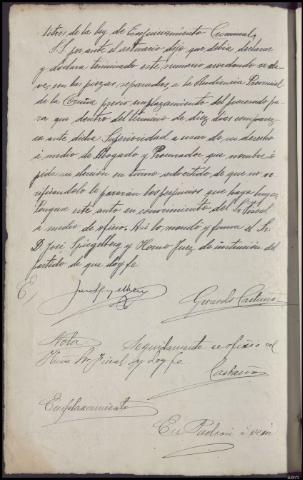 titres de la ley de Enjuiciamiento Criminal,
S.S. por ante el actuario dijo que debia declarar
y declara terminado este sumario
con las piezas separadas, a la Audiencia Provincial
de la Coruña previo emplazamiento del procesado pa
ra que dentro del término de diez dias comparez
ca ante dicha Superioridad a usar de su derecho
á medio de Abogado y Procurador que nombre ó
pida su elección en turno advertido de que no ve
rificandolo le pararán los perjuicios que haya lugar.
Pongase este auto en conocimiento del Sr. Fiscal
á medio de oficio. Así lo mandó y firma el Sr.
D. José Spiegelberg y Horno Juez de instrucción del
partido de que doy fé
José Spiegelberg
Gerardo Castaño
Nota Seguidamente se ofició al
Fiscal doy fe
Castaño
Emplazamiento
En Padron á vein